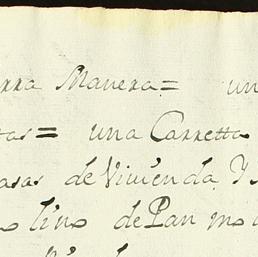 rra Manera= un
tas= una Carretta
asas de Vivienda Y
lino de Pan mo